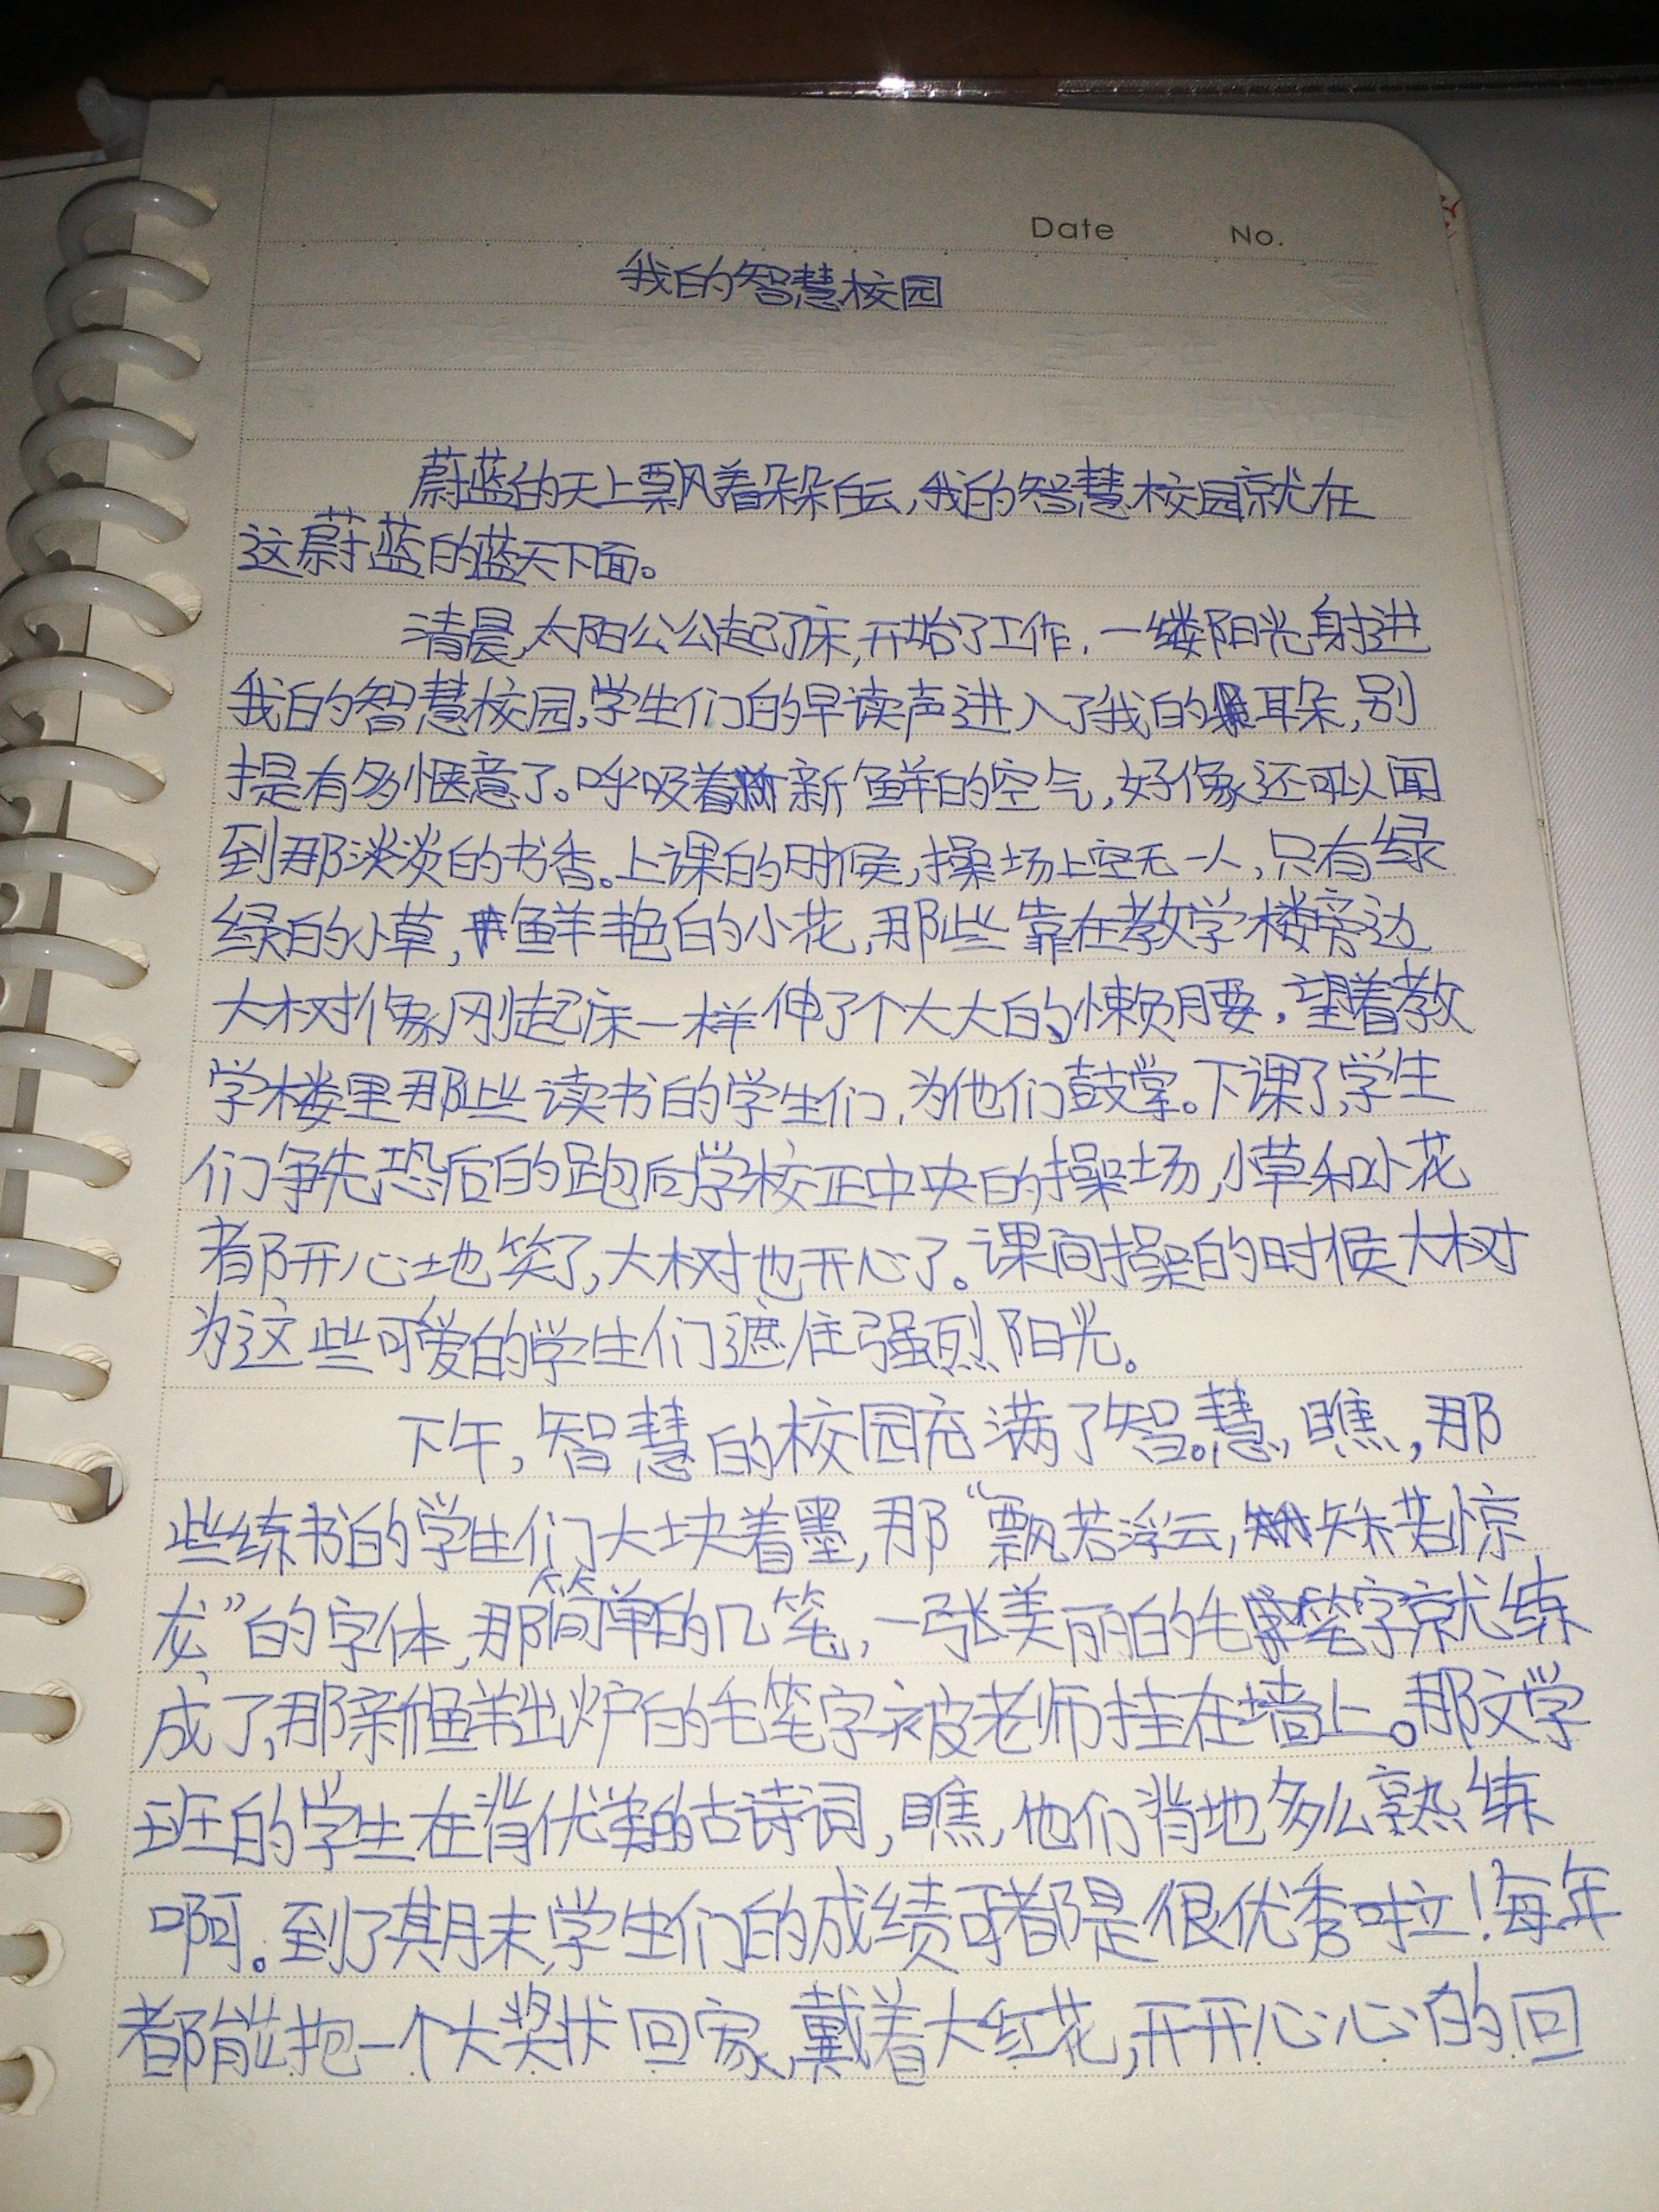 Date No.
我的智慧校园
蔚蓝的天上飘着朵朵白云,我的智慧校园就在
这蔚蓝的蓝天下面。
清晨,太阳公公起了床,开始了工作.一缕阳光射进
我的智慧校园,学生们的早读声进入了我的耳朵,别
提有多惬意了。呼吸着新鲜的空气,好像还可以闻
到那淡淡的书香。上课的时候,操场上空无一人,只有绿
绿的小草,鲜艳的小花,那些靠在教学楼旁边
大树像刚起床一样伸了个大大的懒腰,望着教
学楼里那些读书的学生们,为他们鼓掌。下课了,学生
们争先恐后的跑向学校正中央的操场,小草和小花
都开心地笑了,大树也开心了。课间操的时候大树
为这些可爱的学生们遮住强烈阳光。
下午,智慧的校园充满了智慧,瞧,那
些练书的学生们大块着墨,那“飘若浮云,矢若惊
龙”的字体,那简单的几笔,一张美丽的毛笔字就练
成了,那新鲜出炉的毛笔字被老师挂在墙上。那文学
班的学生在背优美的古诗词,瞧,他们背地多么熟练
啊。到了期末,学生们的成绩可都是很优秀啦!每年
都能抱一个大奖状回家,戴着大红花,开开心心的回